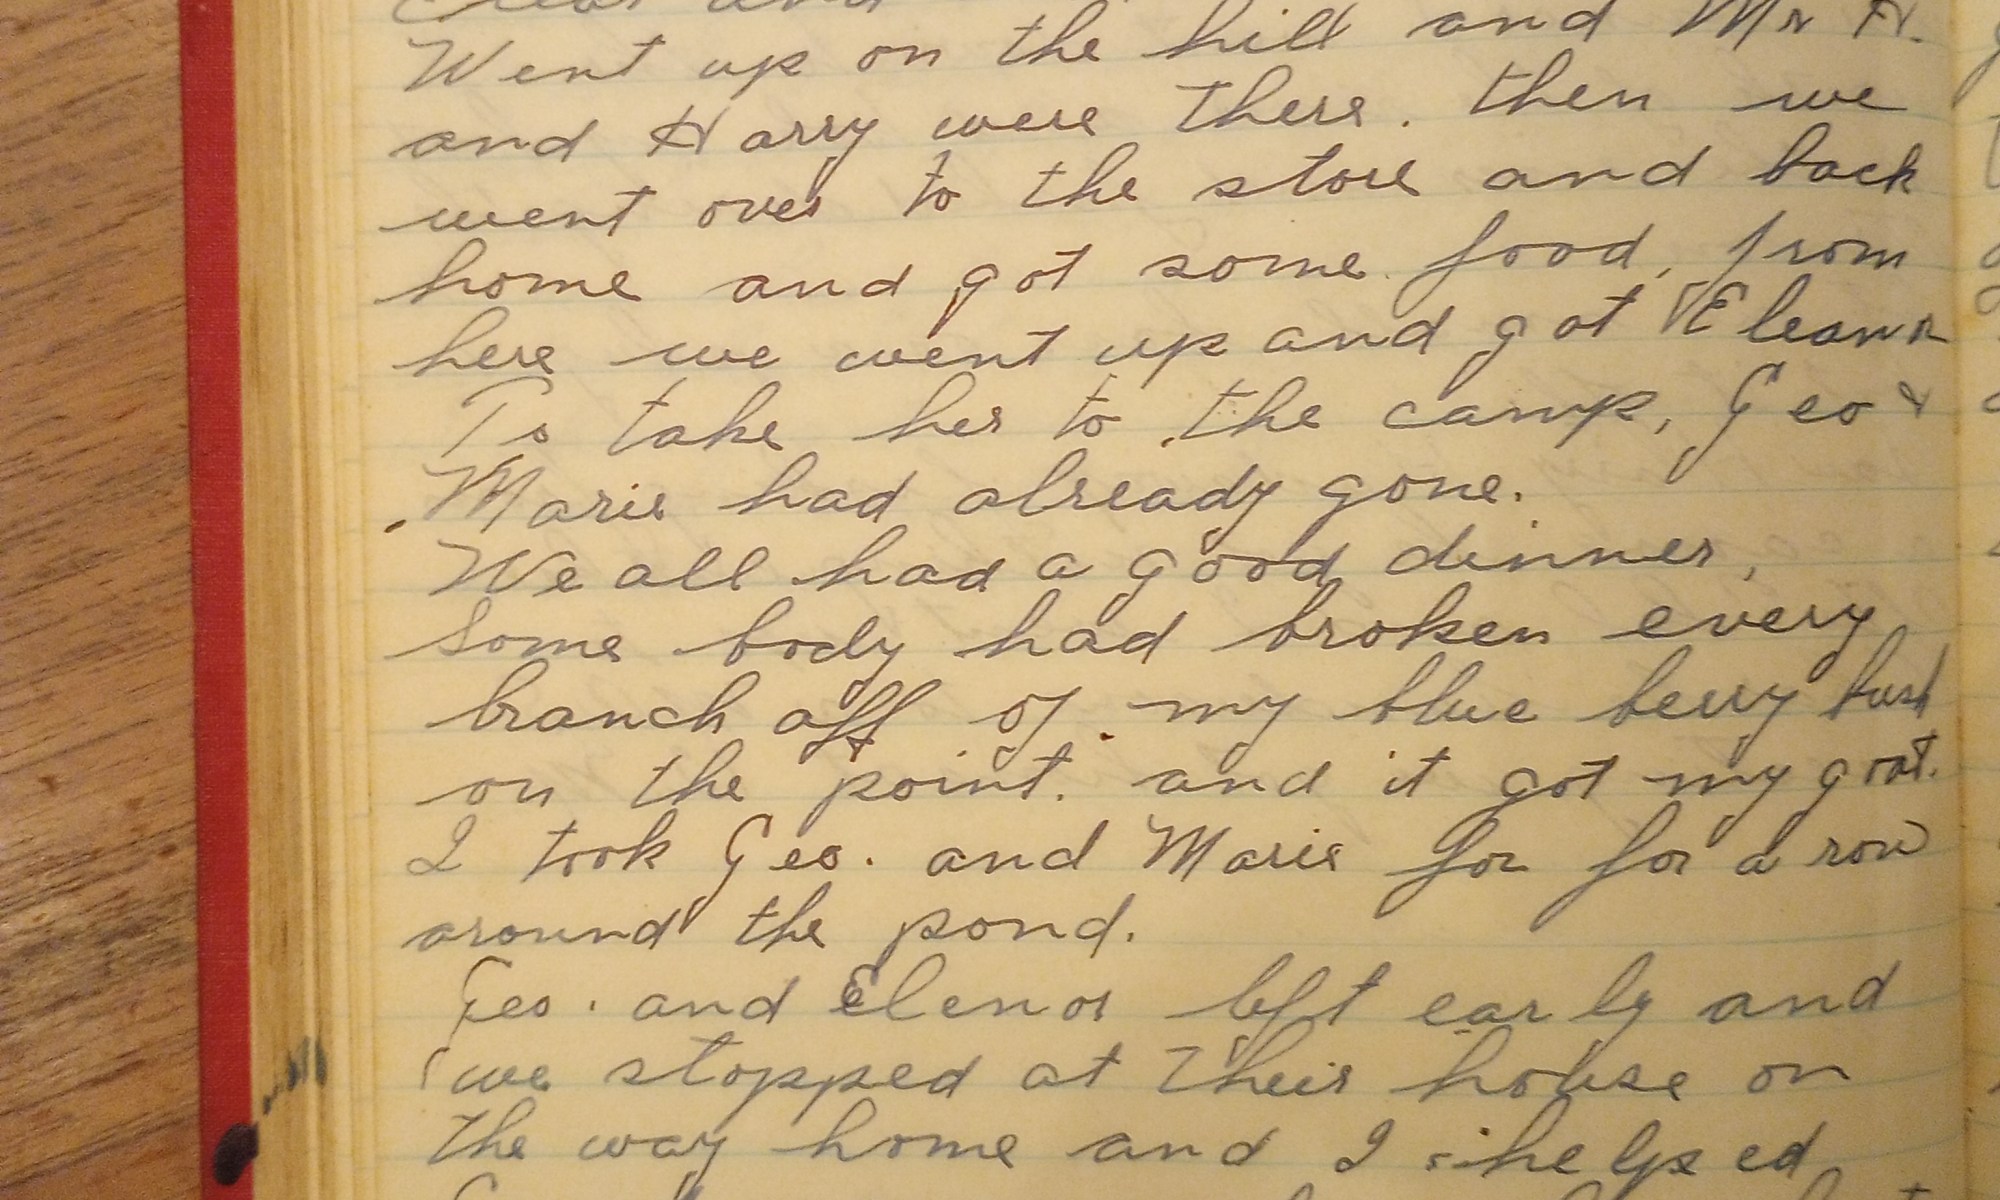 and
Went up on the hill and Mr H.
and Harry were there. then we
went over to the store and back
home and got some food, from
here we went up and got Eleanor
To take her to the camp, Geo &
Marie had already gone.
We all had a good dinner,
Some body had broken every
branch off of my blue berry bush
on the point. and it got my goat.
I took Geo. and Marie for for a row
around the pond.
Geo. and Elenor left early and
we stopped at their house on
the way home and I helped